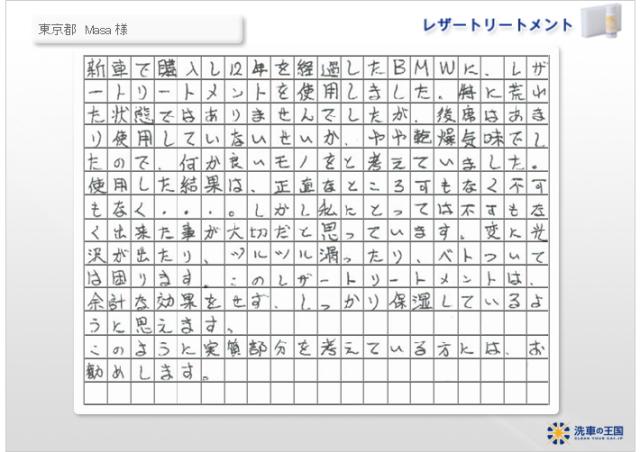 東京都 Masa 様
レザートリートメント
新車で購入し12年を経過したBMWに、レザ
ートリートメントを使用しました。特に荒れ
た状態ではありませんでしたが、後席はあま
り使用していないせいか、やや乾燥気味でし
たので、何か良いモノをと考えていました。
使用した結果は、正直なところ可もなく不可
もなく・・・。しかし私にとっては不可も な
く出来た事が大切だと思っています。変に光
沢が出たり、ツルツル滑ったり、ベトついて
は困ります。このレザートリートメントは、
余計な効果をせず、しっかり保湿しているよ
うと思えます。
このように実質部分を考えている方には、お
勧めします。
洗車の王国
CLEAN YOUR CAR.JP